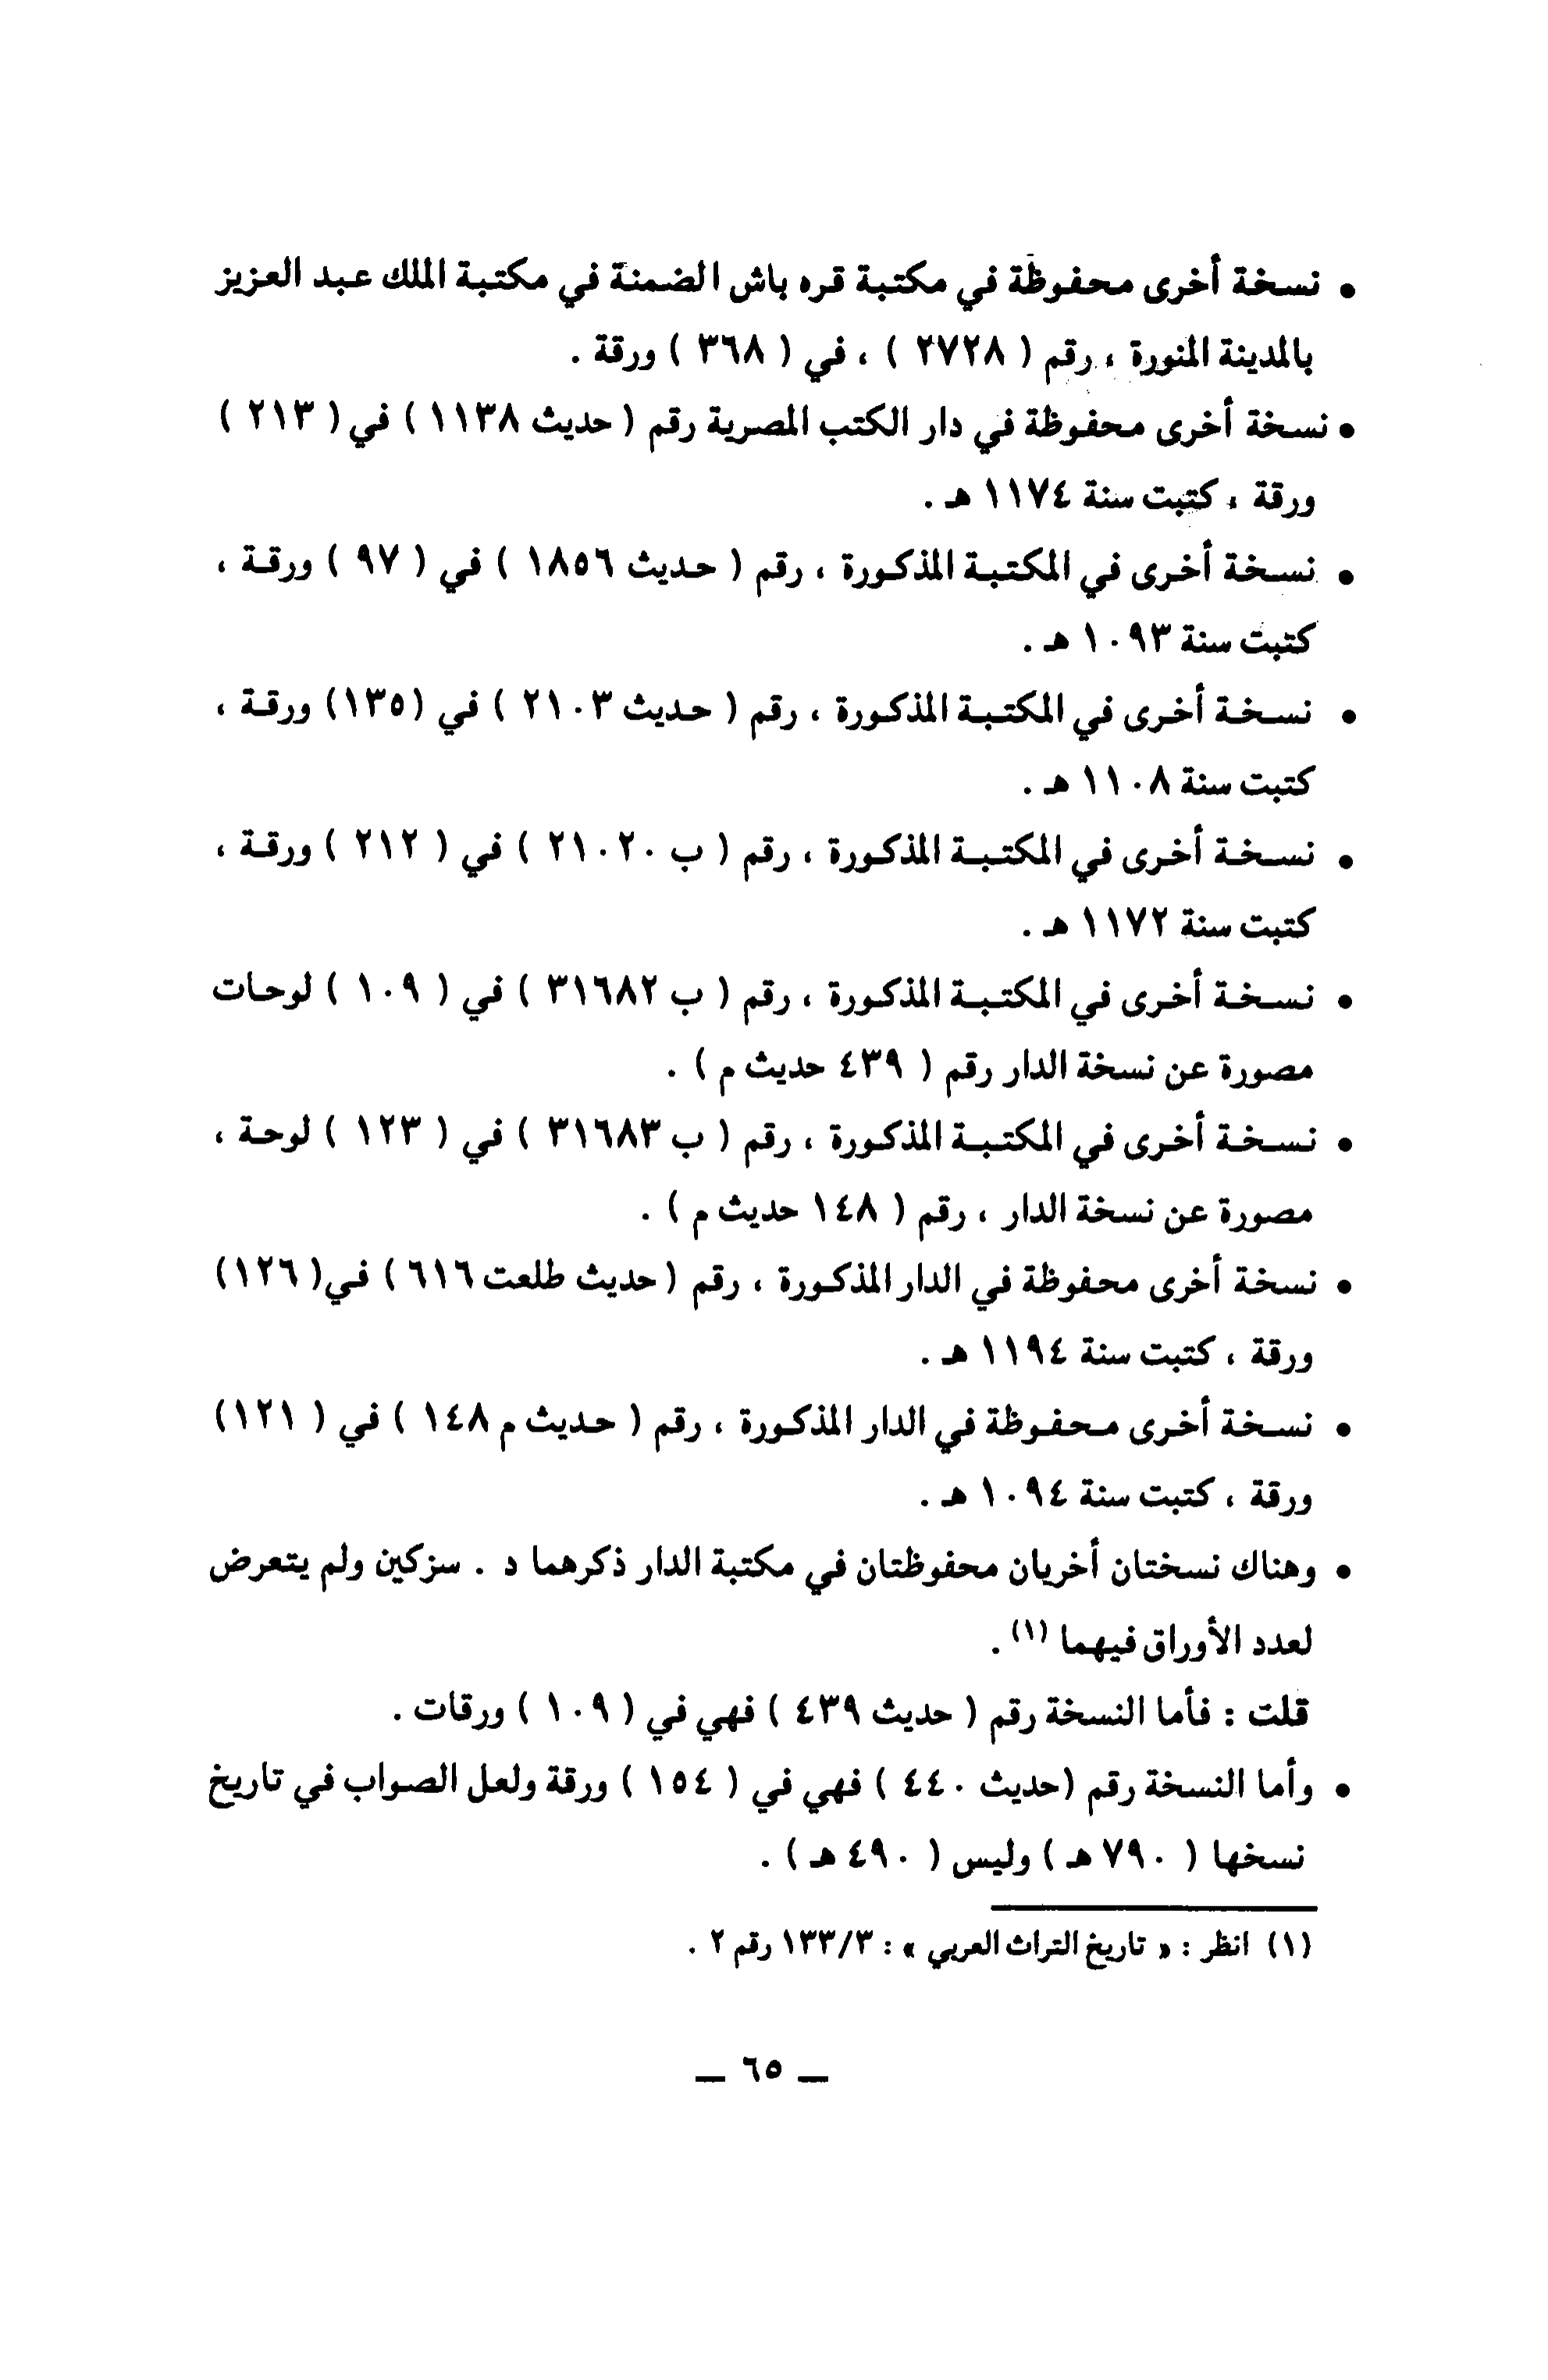 • نسخة أخرى محفوظة في مكتبة قره باش الضمنة في مكتبة الملك عبد العزيز
بالمدينة المنورة ، رقم ( ٢٧٢٨ ) ، في ( ٣٦٨ ) ورقة .
• نسخة أخرى محفوظة في دار الكتب المصرية رقم ( حديث ١١٣٨ ) في ( ٢١٣ )
ورقة ، كتبت سنة ١١٧٤ هـ .
• نسخة أخرى في المكتبة المذكورة ، رقم ( حديث ١٨٥٦ ) في ( ٩٧ ) ورقة ،
كتبت سنة ١٠٩٣ هـ .
• نسخة أخرى في المكتبة المذكورة ، رقم ( حديث ٢١٠٣ ) في (١٣٥) ورقة ،
كتبت سنة ١١٠٨ هـ .
• نسخة أخرى في المكتبة المذكورة ، رقم ( ب ٢١٠٢٠ ) في ( ٢١٢ ) ورقة ،
كتبت سنة ١١٧٢ هـ .
• نسخة أخرى في المكتبة المذكورة ، رقم ( ب ٣١٦٨٢ ) في ( ١٠٩ ) لوحات
مصورة عن نسخة الدار رقم ( ٤٣٩ حديث م ) .
• نسخة أخرى في المكتبة المذكورة ، رقم ( ب ٣١٦٨٣ ) في ( ١٢٣ ) لوحة ،
مصورة عن نسخة الدار ، رقم ( ١٤٨ حديث م ) .
• نسخة أخرى محفوظة في الدار المذكورة ، رقم ( حديث طلعت ٦١٦ ) في( ١٢٦)
ورقة ، كتبت سنة ١١٩٤ هـ .
• نسخة أخرى محفوظة في الدار المذكورة ، رقم ( حديث م ١٤٨ ) في ( ١٢١)
ورقة ، كتبت سنة ١٠٩٤ هـ .
• وهناك نسختان أخريان محفوظتان في مكتبة الدار ذكرهما د . سزكين ولم يتعرض
لعدد الأوراق فيهما (١) .
قلت : فأما النسخة رقم ( حديث ٤٣٩ ) فهي في ( ١٠٩ ) ورقات .
• وأما النسخة رقم (حديث ٤٤٠ ) فهي في ( ١٥٤ ) ورقة ولعل الصواب في تاريخ
نسخها ( ٧٩٠ هـ ) وليس ( ٤٩٠ هـ ) .
(١) انظر : « تاريخ التراث العربي » : ١٣٣/٣ رقم ٢ .
— ٦٥ —